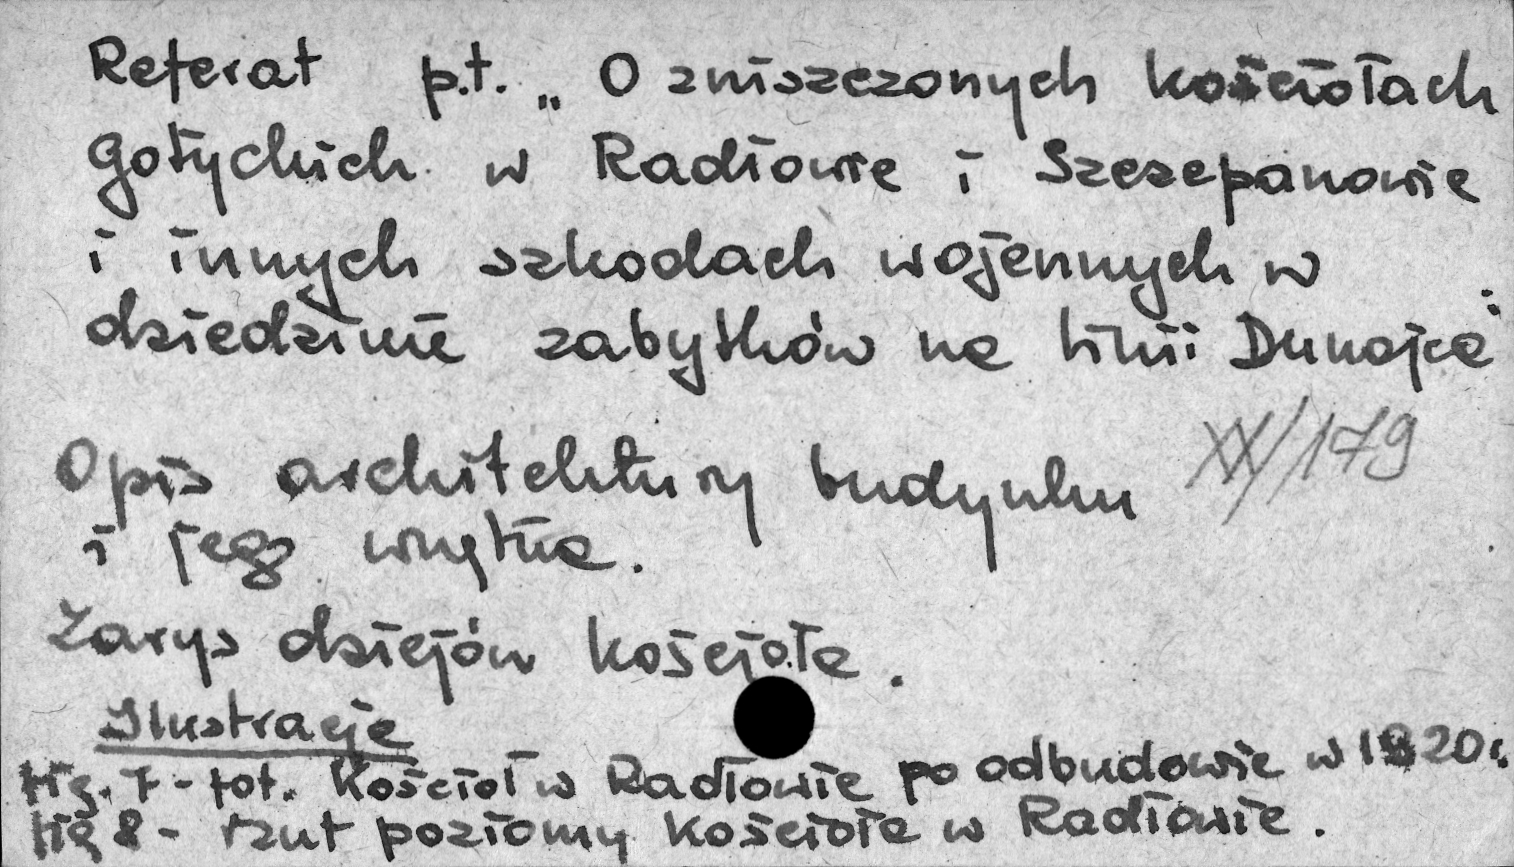 Referat p.t. „O zniszczonych kościołach
gotyckich w Radłowie i Szczepanowie
i innych szkodach wojennych w
dziedzinie zabytków na linii Dunajca"
XX/179
Opis architektury budynku
i jego wnętrza.
Zarys dziejów kościoła.
Ilustracje
fig. 7 - fot. Kościół w Radłowie po odbudowie w 1920r.
fig 8 - rzut poziomy kościoła w Radłowie.